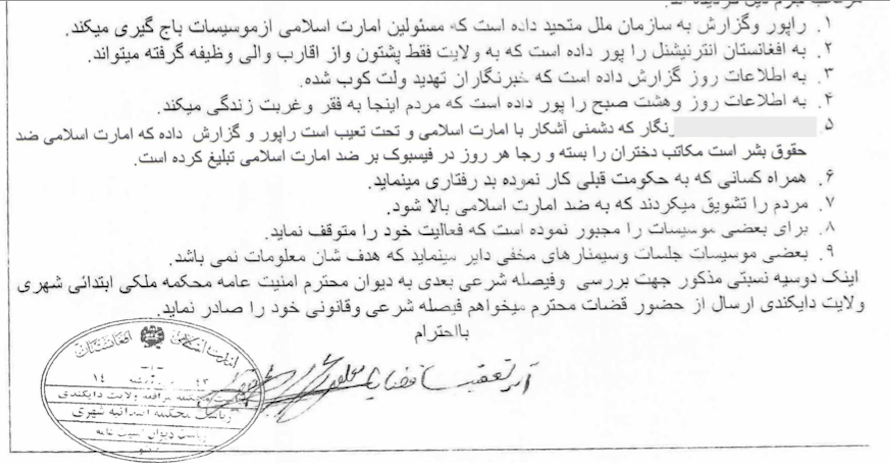 ۱. راپور وگزارش به سازمان ملل متحید داده است که مسئولین امارت اسلامی ازموسیسات باج گیری میکند.
۲. به افغانستان انترنیشنل را پور داده است که به ولایت فقط پشتون واز اقارب والی وظیفه گرفته میتواند.
۳. به اطلاعات روز گزارش داده است که خبرنگاران تهدید ولت کوب شده.
۴. به اطلاعات روز وهشت صبح را پور داده است که مردم اینجا به فقر وغربت زندگی میکند.
۵. رنگار که دشمنی آشکار با امارت اسلامی و تحت تعیب است راپور و گزارش داده که امارت اسلامی ضد
حقوق بشر است مکاتب دختران را بسته و رجا هر روز در فیسبوک بر ضد امارت اسلامی تبلیغ کرده است.
۶. همراه کسانی که به حکومت قبلی کار نموده بد رفتاری مینماید.
۷. مردم را تشویق میکردند که به ضد امارت اسلامی بالا شود.
۸. برای بعضی موسیسات را مجبور نموده است که فعالیت خود را متوقف نماید.
۹. بعضی موسیسات جلسات وسیمنارهای مخفی دایر مینماید که هدف شان معلومات نمی باشد.
اینک دوسیه نسبتی مذکور جهت بررسی وفیصله شرعی بعدی به دیوان محترم امنیت عامه محکمه ملکی ابتدائی شهری
ولایت دایکندی ارسال از حضور قضات محترم میخواهم فیصله شرعی وقانونی خود را صادر نماید.
بااحترام
افغانستان
محکمه مرافعه ولایت دایکندی
ریاست محکمه ابتدائیه شهری
ریاست دیوان امنیت عامه